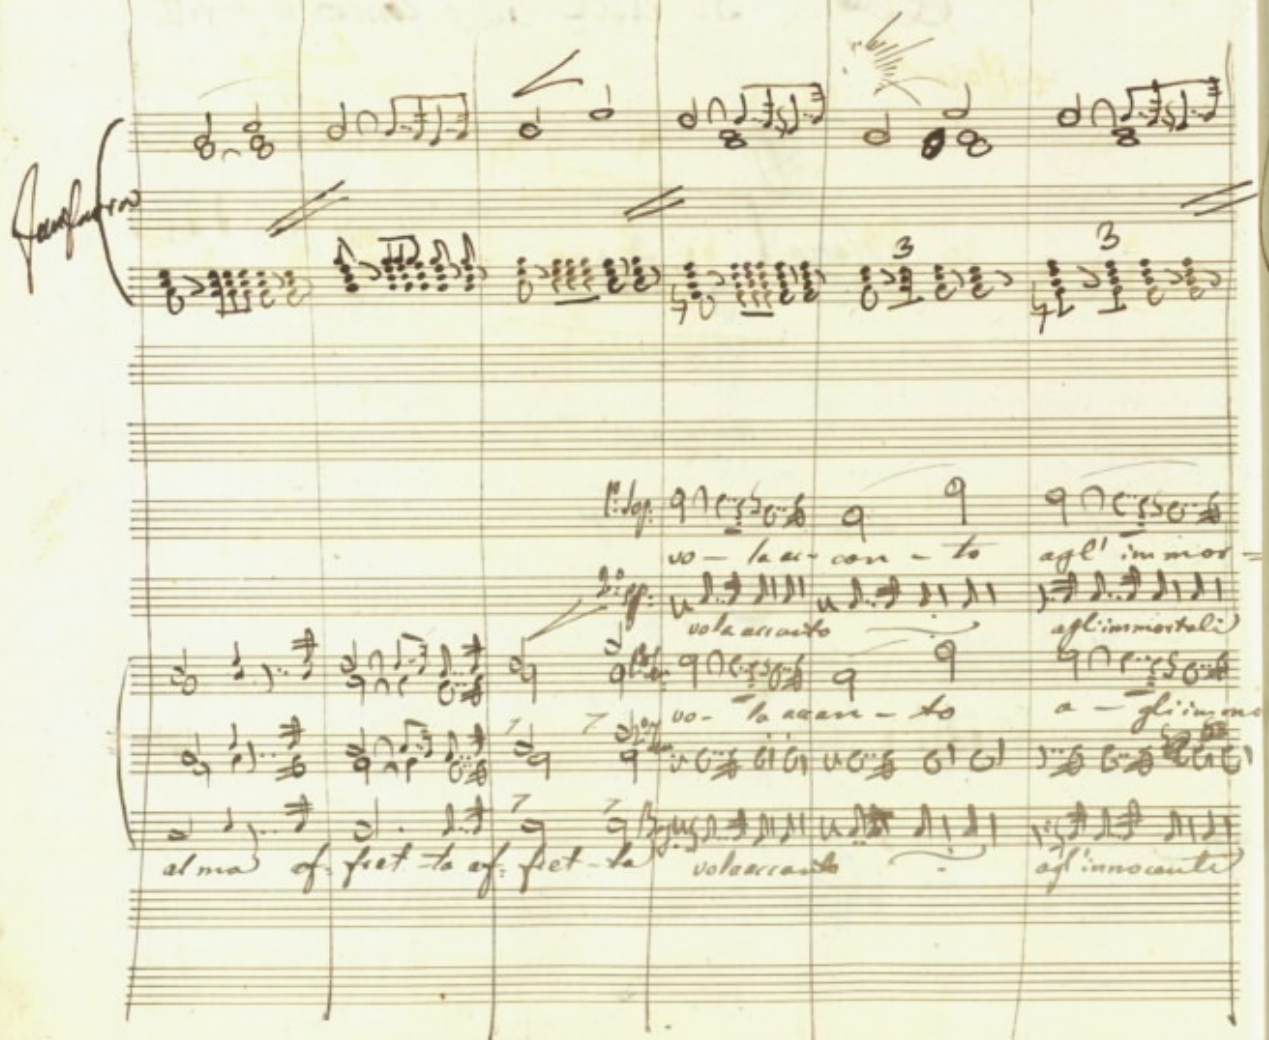 3 3
1º Sop:
vo – la ac – can – to agl' immor –
2º
vola accanto agl'immortali
vo – la accan – to a – gli immo
7 7
7 7
alma af – fret – ta af – fret – ta vola accanto agl'innocenti